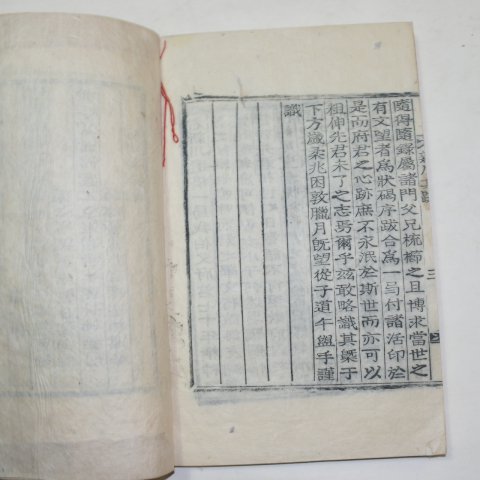 隨得隨錄屬諸門父兄梳櫛之且博求當世之
有文望者為狀碣序跋合為一弓付諸活印於
是向府君之心跡庶不永泯於斯世而亦可以
祖伸先君未了之志焉爾乎玆敢略識其槩于
下方歲柔兆困敦臘月旣望從子道午盥手謹
識